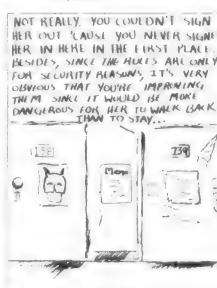 NOT REALLY. YOU COULDN'T SIGN
HER OUT 'CAUSE YOU NEVER SIGNE
HER IN HERE IN THE FIRST PLACE.
BESIDES, SINCE THE RULES ARE ONLY
FOR SECURITY REASONS, IT'S VERY
OBVIOUS THAT YOU'RE IMPROVING
THEM SINCE IT WOULD BE MORE
DANGEROUS FOR HER TO WALK BACK
THAN TO STAY...
239